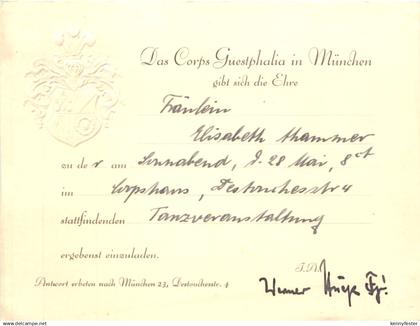 Das Corps Guestphalia in München
gibt sich die Ehre
Fräulein
Elisabeth Thammer
zu der am Sonnabend, d. 28 Mai, 8ct
im Corpshaus, Destouchesstr 4
stattfindenden Tanzveranstaltung
ergebenst einzuladen.
J.A.
Antwort erbeten nach München 23, Destouchestr. 4
Werner